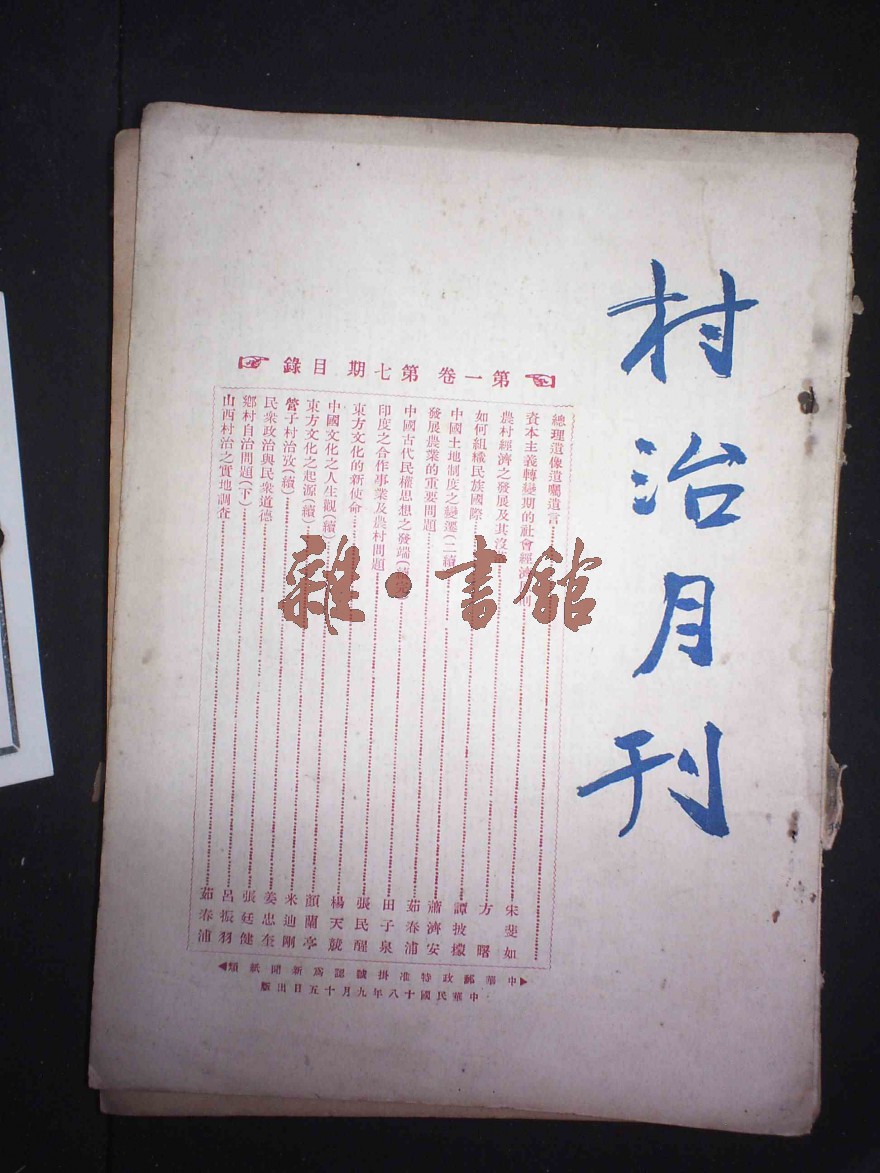 村治月刊
第一卷 第七期 目錄
總理遺像遺囑遺言
資本主義轉變期的社會經濟 則 宋斐如
農村經濟之發展及其沒 方曙
如何組織民族國際 譚披
中國土地制度之變遷(二續) 蕭濟安
發展農業的重要問題 茹春浦
中國古代民權思想之發端 田子泉
印度之合作事業及農村問題 張民醒
東方文化的新使命 楊天競
中國文化之人生觀(續) 顏蘭亭
東方文化之起源(續) 米迪剛
管子村治攷(續) 姜忠奎
民衆政治與民衆道德 張廷健
鄉村自治問題(下) 呂振羽
山西村治之實地調查 茹春浦
中華郵政特准掛號認爲新聞紙類
中華民國十八年九月十五日出版
雜·書館